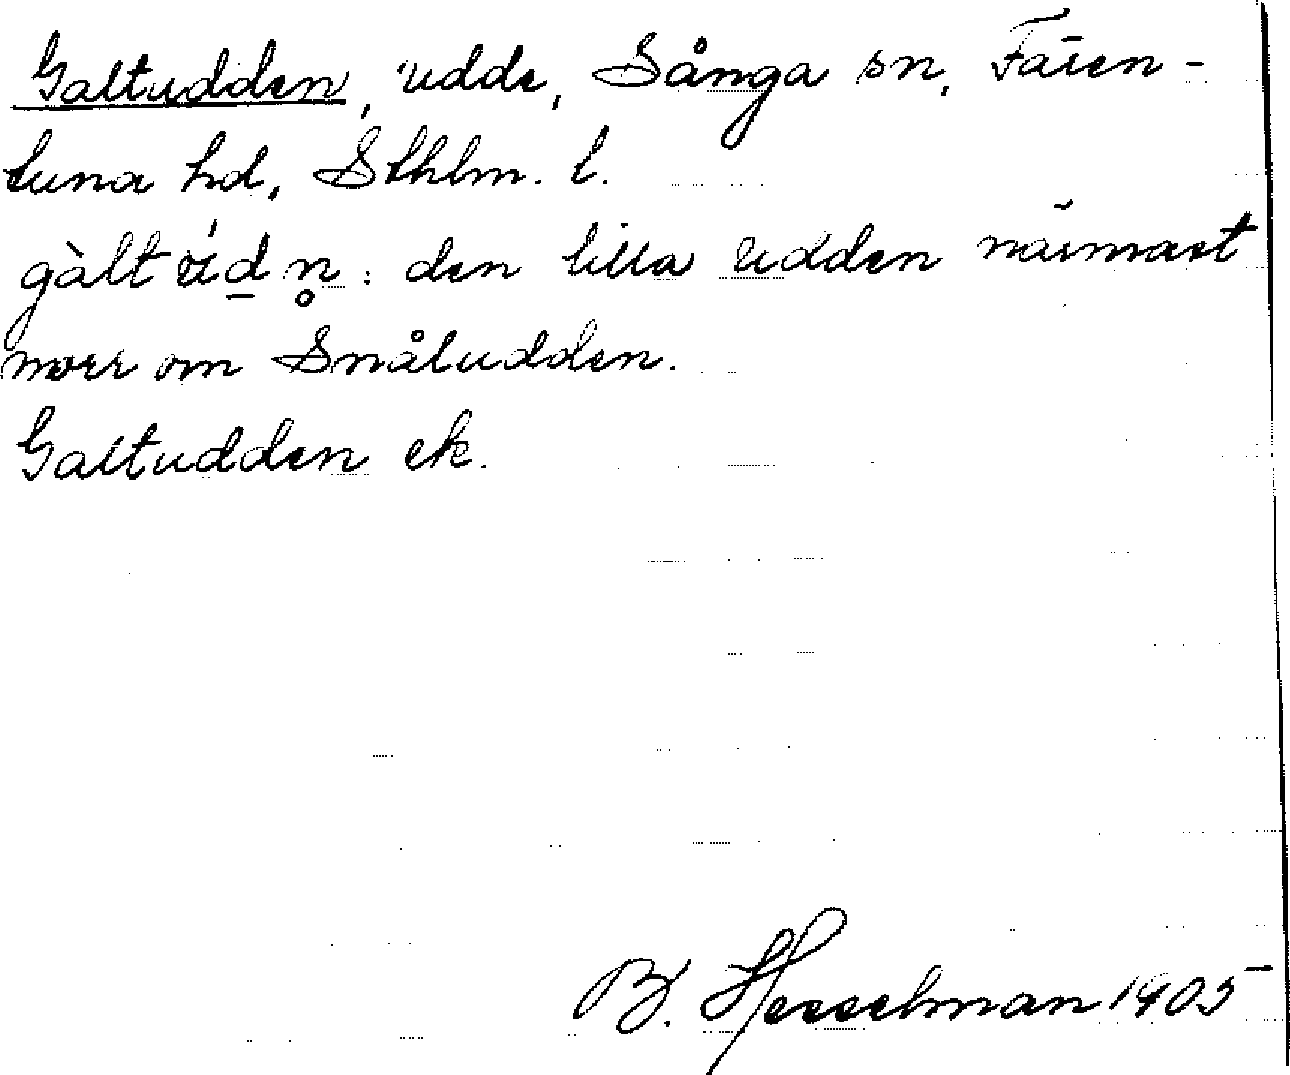 Galtudden, udde, Sånga sn, Fären-
tuna hd, Sthlm. l.
gàltúdn̥: den lilla udden närmast
norr om Snåludden.
Galtudden ek.
B. Hesselman 1905